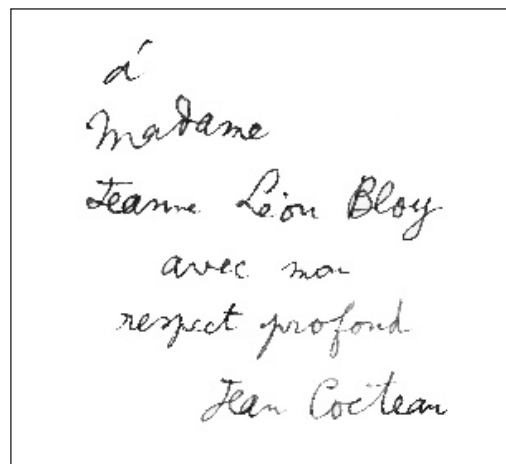 à
Madame
Jeanne Léon Bloy
avec mon
respect profond
Jean Cocteau